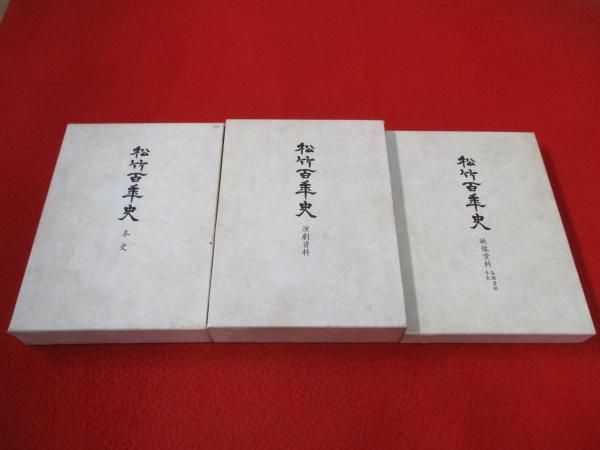 松竹百年史
本史
松竹百年史
演劇資料
松竹百年史
映像資料
各種資料
年表